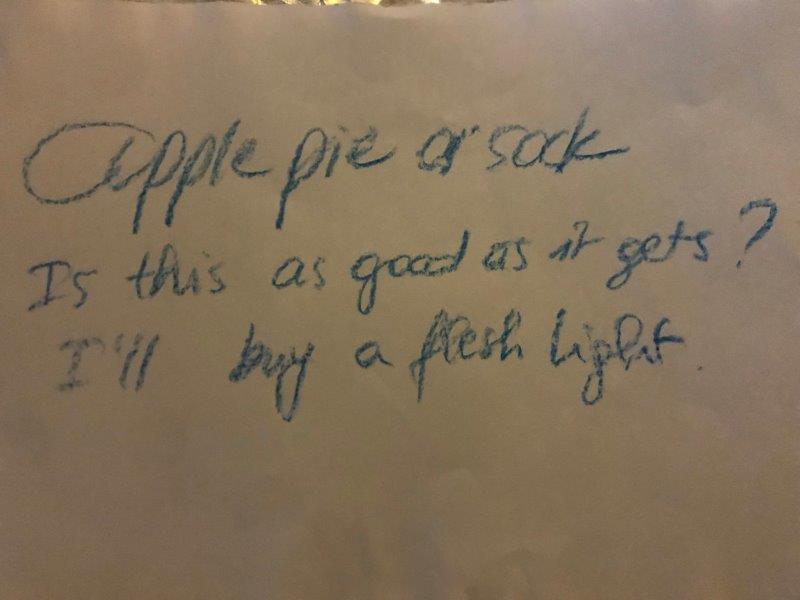 Apple pie or sock
Is this as good as it gets?
I'll buy a flesh light.